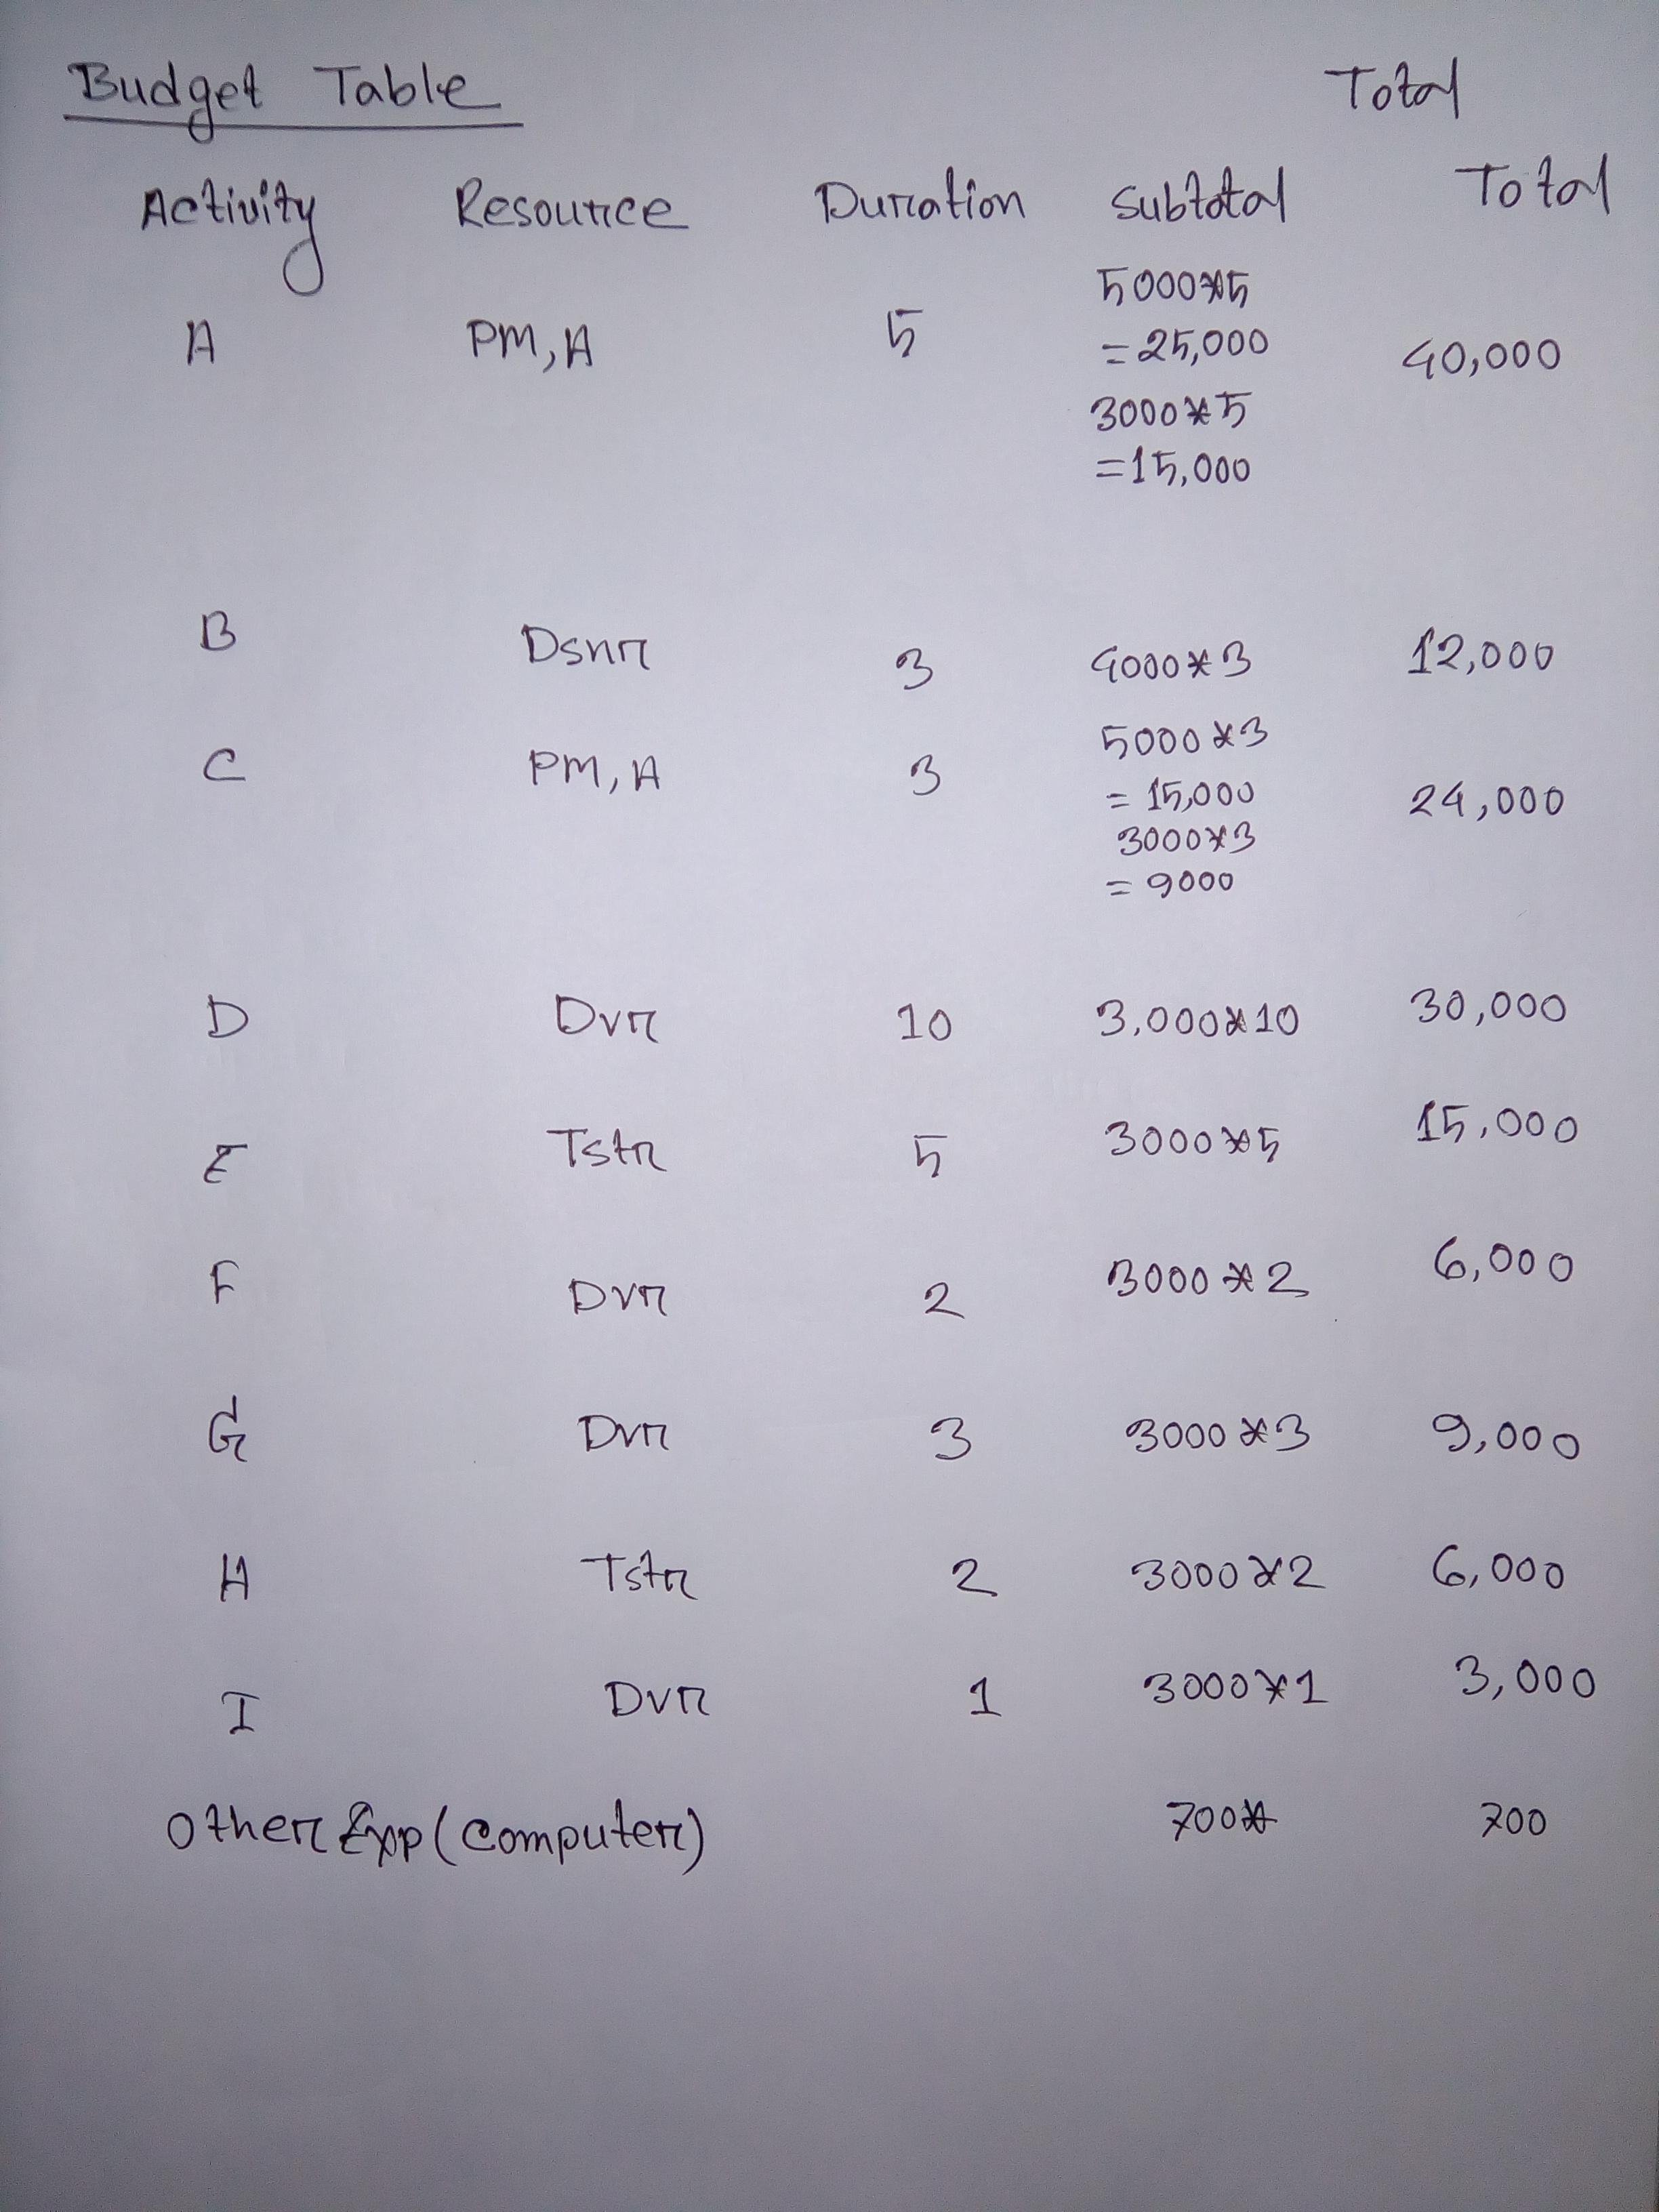 Budget Table Total
Activity Resource Duration Subtotal Total
5000*5
A PM, A 5 = 25,000 40,000
3000*5
=15,000
B Dsnr 3 4000*3 12,000
5000*3
C PM, A 3 = 15,000 24,000
3000*3
= 9000
D Dvr 10 3,000*10 30,000
E Tstr 5 3000*5 15,000
F Dvr 2 3000*2 6,000
G Dvr 3 3000*3 9,000
H Tstr 2 3000*2 6,000
I Dvr 1 3000*1 3,000
Other Exp (Computer) 700* 700